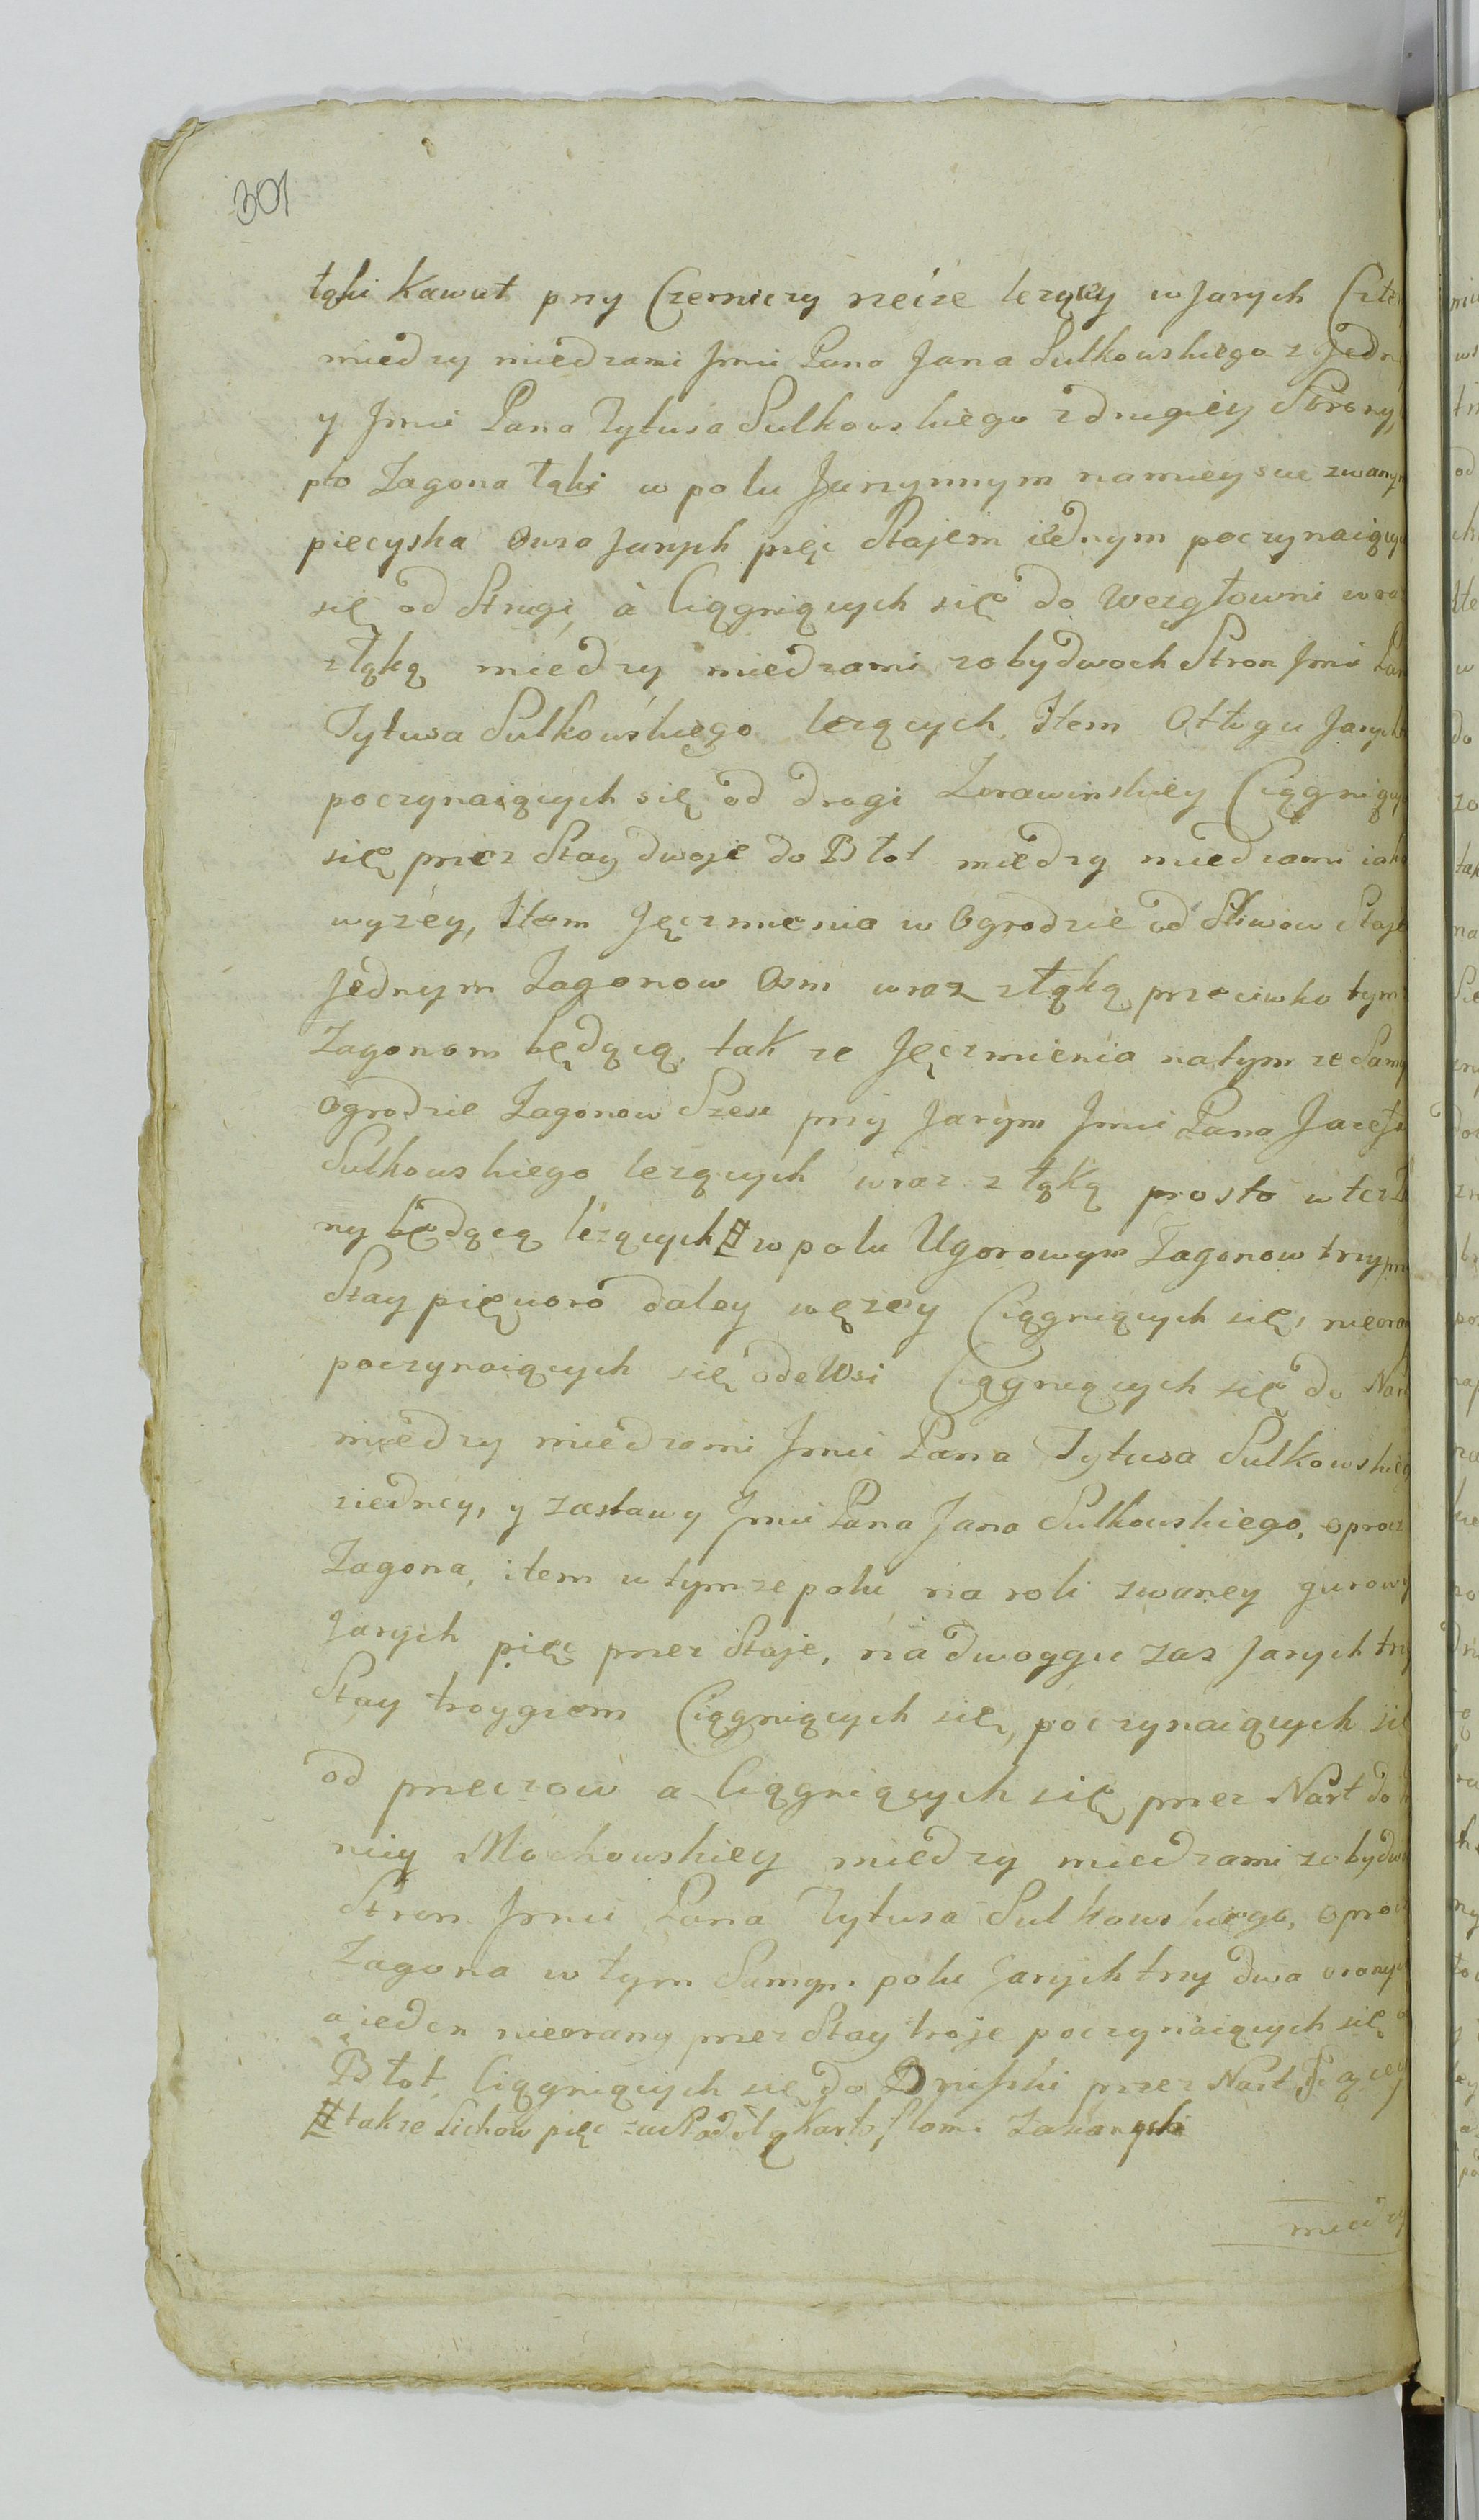 301
łąki Kawał przy Czerniczy rzeice lezący w Jarych Czter
miedzy miedzami Jmci Pana Jana Sulkowskiego z Jedn
y Jmci Pana Tytusa Sulkowskiego z drugiey Strony,
pto Zagona łąki w polu Jarzynnym na mieyscu zwany
piecyska Owsa Jarych pięc Stajem iednym poczynaiący
się od Strugi, a Ciągniących się do Wezgłowni wra
z łąką miedzy miedzami z obydwoch Stron Jmci Pan
Tytusa Sulkowskiego lezących, Item Ottugu Jarych
poczynaiących się od drogi Zorawinskiey Ciągniący
się przez Stay dwoje do Błot miedzy miedzami iak
wyzey, Item Jęczmienia w Ogrodzie od Sliwow Staje
Jednym Zagonow Osm wraz z łąką przeciwko tym
Zagonom będącą, tak ze Jęczmienia na tym ze Samy
Ogrodzie Zagonow Szesc przy Jarym Jmci Pana Jozefa
Sulkowskiego lezących wraz z łąką prosto w
ny będącą lezących # w polu Ugorowym Zagonow trzy prz
Stay pięcioro daley węzey Ciągniących się, nieora
poczynaiących się ode Wsi Ciągniących się do Nar
miedzy miedzami Jmci Pana Tytusa Sulkowskieg
z iedney, y zastawy Jmci Pana Jana Sulkowskiego, oprocz
Zagona, item w tymze polu na roli zwaney gurowy
Jarych pięc przez Staje, na dwoygu zas Jarych trzy
Stay troygiem Ciągniących się, poczynaiących się
od przeczow a Ciągniących się przez Nart do
nicy Mochowskiey miedzy miedzami z obydwu
Stron Jmci Pana Tytusa Sulkowskiego, oprocz
Zagona w tym Samym polu Jarych trzy dwa orany
a ieden nieorany przez Stay troje poczynaiących się o
Błot, Ciągniących się do Drwiski przez Nart
# takze Lichow pięc za Stodołą Kartoflami Zasianych
miedzy